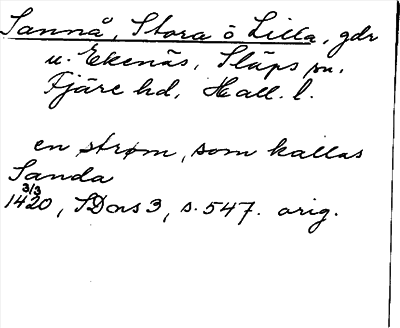 Sannå, Stora o Lilla, gdr
u. Ekenäs, Släps sn.
Fjäre hd, Hall. l.
en strøm, som kallas
Sanda
3/3
1420, SDns 3, s. 547. orig.